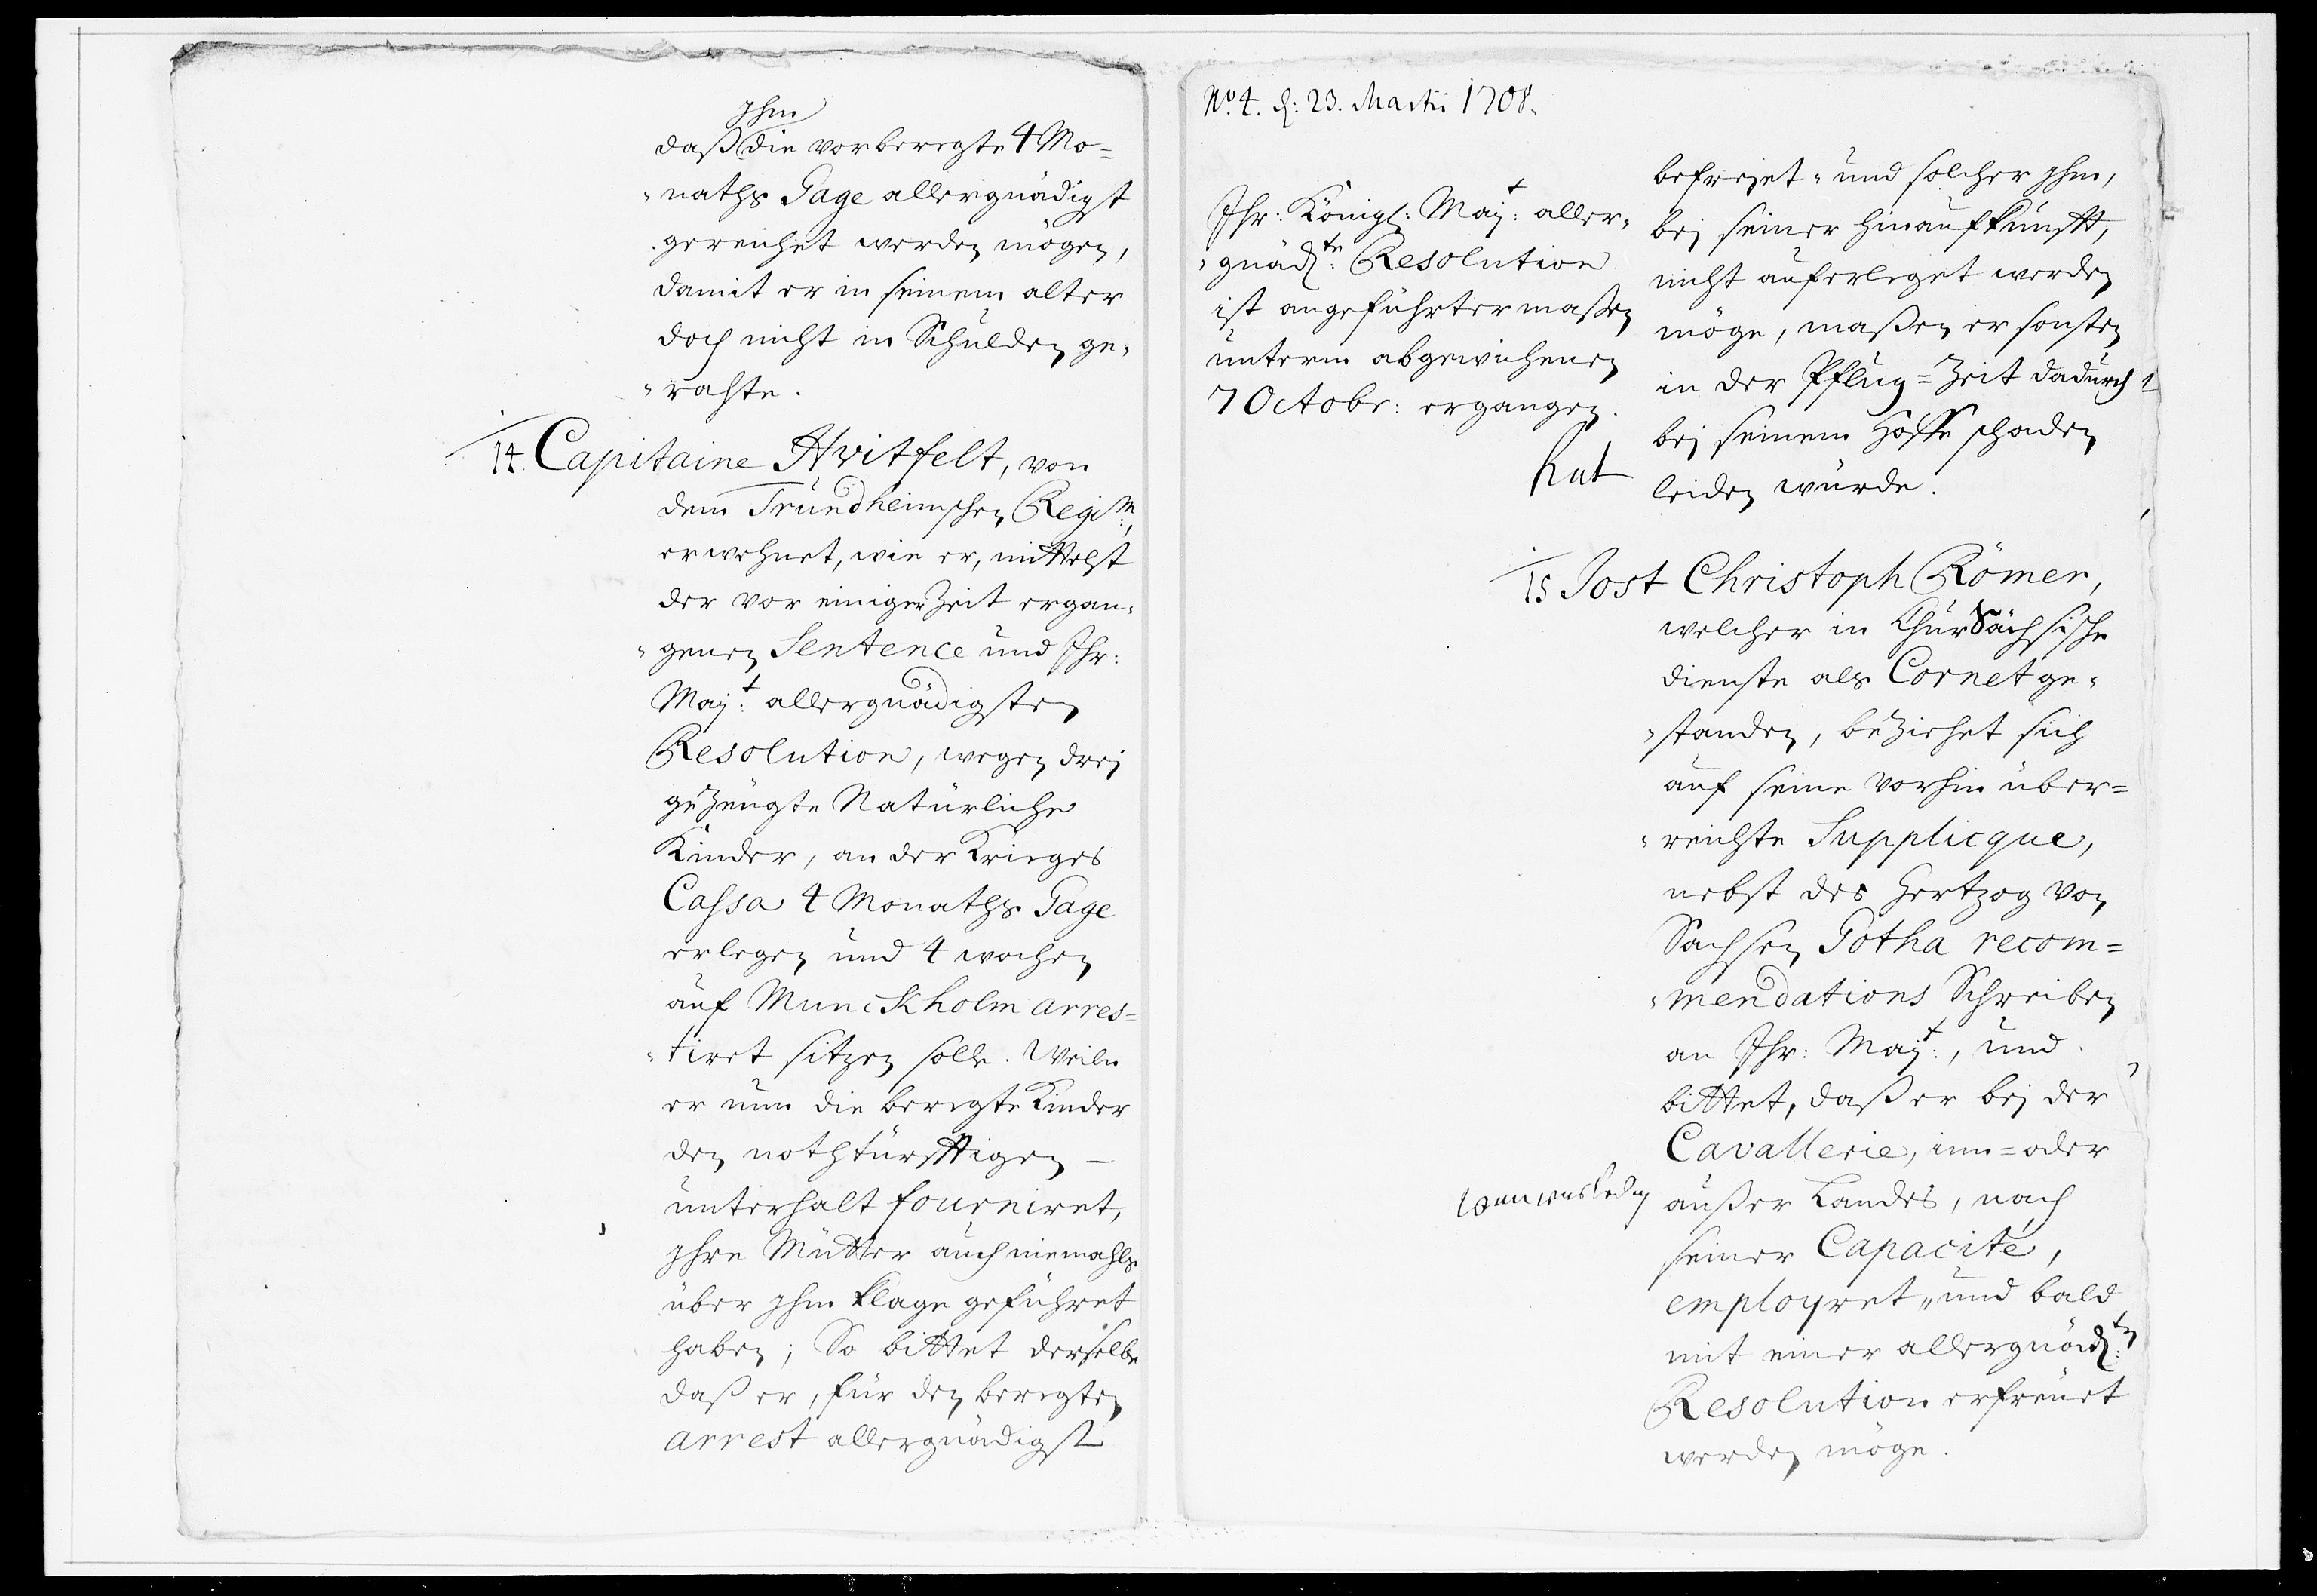 Ihm
daß die vorberegte 4 Mo=
"naths Gage allergnädigst
gereichet werden mögen,
damit er in seinem alter
doch nicht in Schulden ge"
"rahte.
14. Capitaine Hvitfelt, von
dem Trundheimschen Regim:,
erwehnet, wie er, mittelst
der vor einiger Zeit ergan"
"genen Sentence und Ihr:
Maj:t allergnädigsten
Resolution, wegen drej
gezeugte Natürliche
Kinder, an der Krieges
Cassa 4 Monaths Gage
erlegen und 4 wochen
auf Munckholm arres=
"tiret sitzen solle. Weiln
er nun die beregte Kinder
den nothtürfftigen —
unterhalt fourniret,
Ihre Mütter auch niemahls
über Ihm klage geführet
haben; So bittet derselbe
daß er, für den beregten
arrest allergnädigst
No. 4. d: 23. Martii 1708.
Ihr: Königl: Maj:t aller"
"gnäd:ste Resolution
ist angeführtermaßen
unterm abgewichenen
7 Octobr: ergangen.
hat
befrejet" und solcher Ihm,
bej seiner hinaufkunfft,
nicht auferleget werden
möge, maßen er sonsten
in der Pflug=Zeit dadurch
bej seinem Hoffe schaden
leiden würde.
15 Jost Christoph Römer,
welcher in ChurSächsische
dienste als Cornet ge"
"standen, beziehet sich
auf seine vorhin über=
"reichte Supplicque,
nebst des Hertzog von
Sachsen Gotha recom=
"mendations Schreiben
an Ihr: Maj:t, und
bittet, daß er bej der
Cavallerie, inn=oder
außer Landes, nach
seiner Capacité,
employret" und bald
mit einer allergnäd:sten
Resolution erfreuet
werden möge.
wan was ledig